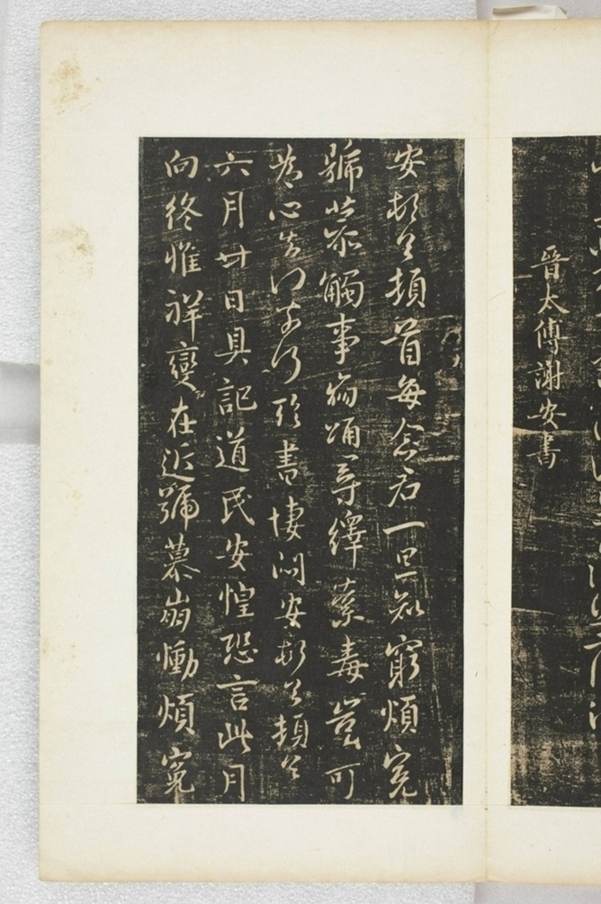 晉太傅謝安書
安頓首頓首每念君一旦知窮煩冤
號慕觸事傷踊尋繹荼毒豈可
為心奈何奈何臨書悽悶安頓首頓首
六月廿日具記道民安惶恐言此月
向終惟祥變在近號慕崩慟煩冤